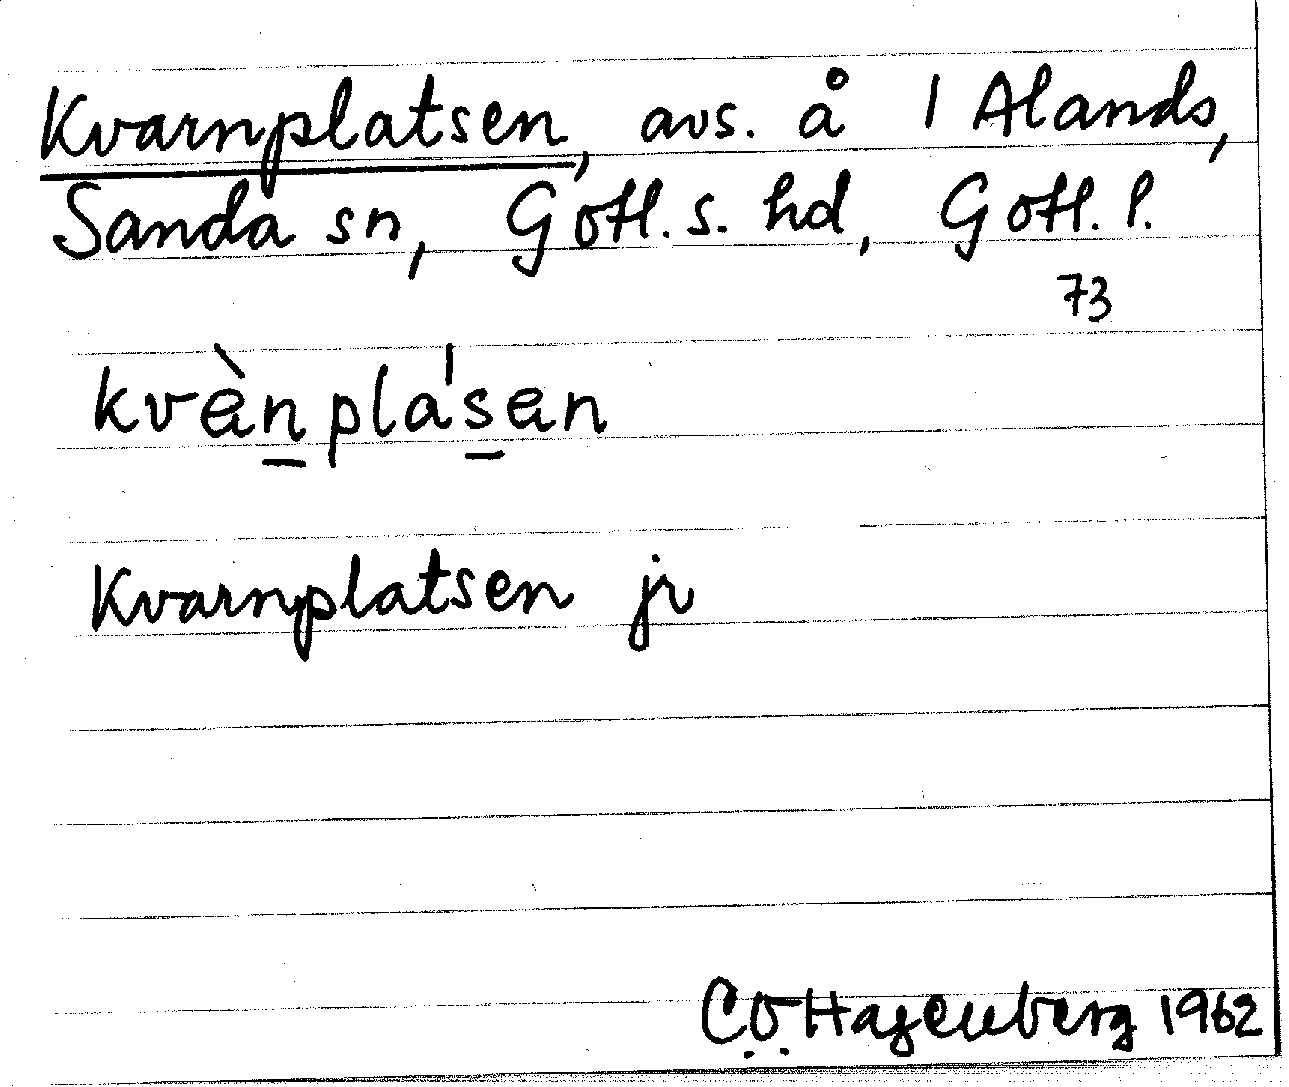 Kvarnplatsen, avs. å 1 Alands,
Sanda sn, Gotl. s. hd, Gotl. l.
73
kvàn̲pla's̲an
Kvarnplatsen jr
C.O. Hagenberg 1962